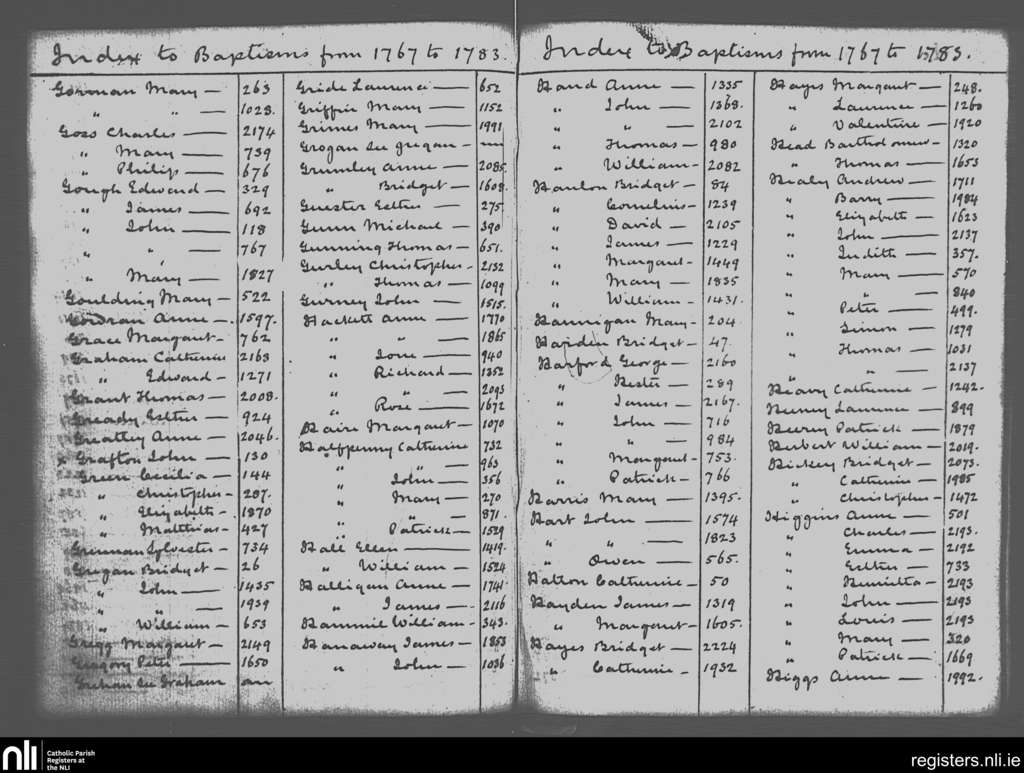 Index to Baptisms from 1767 to 1783.
Gorman Mary — 263
" " — 1028.
Goss Charles — 2174
" Mary — 739
" Philip — 676
Gough Edward — 329
" James — 692
" John — 118
" " — 767
" Mary — 1827
Goulding Mary — 522
Anne — 1597.
Grace Margaret — 762
Graham Catherine 2163
" Edward — 1271
Grant Thomas — 2008.
Gready Esther — 924
Greatley Anne — 2046.
x Grafton John — 130
Green Cecilia — 144
" Christopher — 287.
" Elizabeth — 1870
" Matthias — 427
Grennan Sylvester — 734
Grogan Bridget — 26
" John — 1435
" " — 1939
" William — 653
Grigg Margaret — 2149
Gregory Peter — 1650
Grehan see Graham
Gride Laurence — 652
Griffin Mary — 1152
Grimes Mary — 1991
Grogan see Gregan —
Grumley Anne — 2085.
" Bridget — 1608.
Guester Esther — 275
Gunn Michael — 390
Gunning Thomas — 651.
Gurley Christopher — 2132
" Thomas — 1099
Gurney John — 1515.
Hackett Anne — 1770
" " — 1865
" Jone — 940
" Richard — 1352
" " — 2093
" Rose — 1672
Haire Margaret — 1070
Halfpenny Catherine 732
" " — 963
" John — 356
" Mary — 270
" " — 871.
" Patrick — 1529
Hall Ellen — 1419.
" William — 1524
Halligan Anne — 1741.
" James — 2116
Hammil William — 343.
Hanaway James — 1853
" John — 1036
Index to Baptisms from 1767 to 1783.
Hand Anne — 1335
" John — 1368.
" " — 2102
" Thomas — 980
" William — 2082
Hanlon Bridget — 84
" Cornelius — 1239
" David — 2105
" James — 1229
" Margaret — 1449
" Mary — 1835
" William — 1431.
Hannigan Mary — 204
Harden Bridget — 47.
Harford George — 2160
" Hester — 289
" James — 2167.
" John — 716
" " — 984
" Margaret — 753.
" Patrick — 766
Harris Mary — 1395.
Hart John — 1574
" " — 1823
" Owen — 565.
Hatton Catherine — 50
Hayden James — 1319
" Margaret — 1605.
Hayes Bridget — 2224
" Catherine — 1932
Hayes Margaret — 248.
" Laurence — 1260
" Valentine — 1920
Head Bartholomew — 1320
" Thomas — 1653
Healy Andrew — 1711
" Barry — 1984
" Elizabeth — 1623
" John — 2137
" Judith — 357.
" Mary — 570
" " — 840
" Peter — 499.
" Simon — 1279
" Thomas — 1031
" " — 2137
Heavy Catherine — 1242.
Heeney Laurence — 899
Heery Patrick — 1879
Herbert William — 2019.
Hickey Bridget — 2073.
" Catherine — 1985
" Christopher — 1472
Higgins Anne — 501
" Charles — 2193.
" Emma — 2192
" Esther — 733
" Henrietta — 2193
" John — 2193
" Louis — 2193
" Mary — 320
" Patrick — 1669
Higgs Anne — 1992.
nli
Catholic Parish
Registers at
the NLI
registers.nli.ie